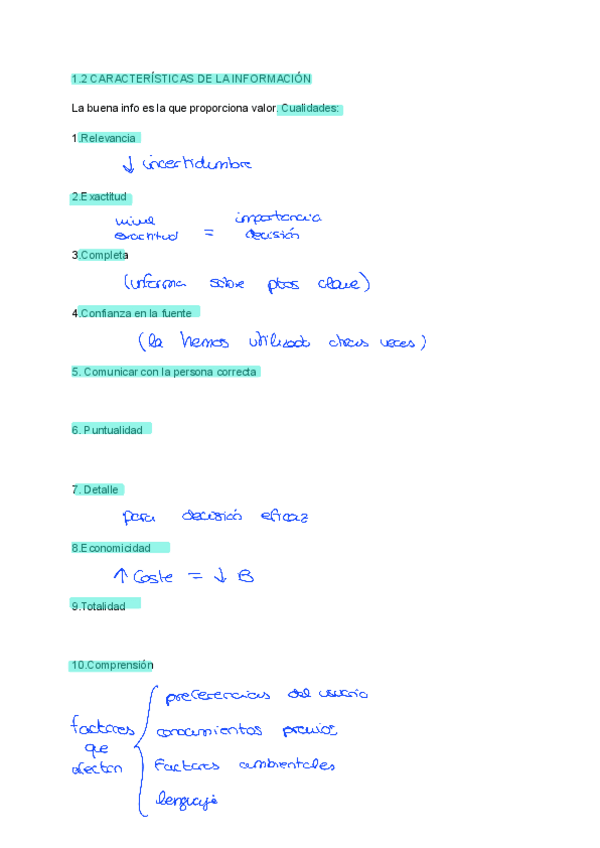 1.2 CARACTERÍSTICAS DE LA INFORMACIÓN
La buena info es la que proporciona valor. Cualidades:
1.Relevancia
↓ incertidumbre
2.Exactitud
nivel exactitud = importancia decisión
3.Completa
(informa sobre ptos clave)
4.Confianza en la fuente
(la hemos utilizado otras veces)
5. Comunicar con la persona correcta
6. Puntualidad
7. Detalle
para decisión eficaz
8.Economicidad
↑ Coste = ↓ B
9.Totalidad
10.Comprensión
factores que afectan
preferencias del usuario
conocimientos previos
Factores ambientales
lenguaje